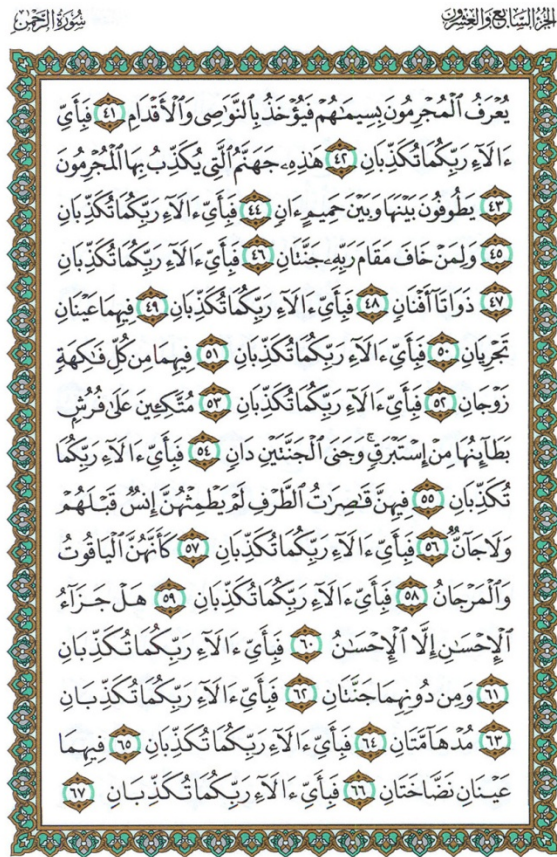 الجزء السابع والعشرون
سُورَةُ الرَّحْمَٰن
يُعْرَفُ الْمُجْرِمُونَ بِسِيمَٰهُمْ فَيُؤْخَذُ بِالنَّوَٰصِى وَالْأَقْدَامِ ٤١ فَبِأَىِّ
ءَالَآءِ رَبِّكُمَا تُكَذِّبَانِ ٤٢ هَٰذِهِۦ جَهَنَّمُ الَّتِى يُكَذِّبُ بِهَا الْمُجْرِمُونَ
٤٣ يَطُوفُونَ بَيْنَهَا وَبَيْنَ حَمِيمٍ ءَانٍ ٤٤ فَبِأَىِّ ءَالَآءِ رَبِّكُمَا تُكَذِّبَانِ
٤٥ وَلِمَنْ خَافَ مَقَامَ رَبِّهِۦ جَنَّتَانِ ٤٦ فَبِأَىِّ ءَالَآءِ رَبِّكُمَا تُكَذِّبَانِ
٤٧ ذَوَاتَآ أَفْنَانٍ ٤٨ فَبِأَىِّ ءَالَآءِ رَبِّكُمَا تُكَذِّبَانِ ٤٩ فِيهِمَا عَيْنَانِ
تَجْرِيَانِ ٥٠ فَبِأَىِّ ءَالَآءِ رَبِّكُمَا تُكَذِّبَانِ ٥١ فِيهِمَا مِن كُلِّ فَٰكِهَةٍ
زَوْجَانِ ٥٢ فَبِأَىِّ ءَالَآءِ رَبِّكُمَا تُكَذِّبَانِ ٥٣ مُتَّكِـِٔينَ عَلَىٰ فُرُشٍ
بَطَآئِنُهَا مِنْ إِسْتَبْرَقٍ ۚ وَجَنَى الْجَنَّتَيْنِ دَانٍ ٥٤ فَبِأَىِّ ءَالَآءِ رَبِّكُمَا
تُكَذِّبَانِ ٥٥ فِيهِنَّ قَٰصِرَٰتُ الطَّرْفِ لَمْ يَطْمِثْهُنَّ إِنسٌ قَبْلَهُمْ
وَلَا جَآنٌّ ٥٦ فَبِأَىِّ ءَالَآءِ رَبِّكُمَا تُكَذِّبَانِ ٥٧ كَأَنَّهُنَّ الْيَاقُوتُ
وَالْمَرْجَانُ ٥٨ فَبِأَىِّ ءَالَآءِ رَبِّكُمَا تُكَذِّبَانِ ٥٩ هَلْ جَزَآءُ
الْإِحْسَٰنِ إِلَّا الْإِحْسَٰنُ ٦٠ فَبِأَىِّ ءَالَآءِ رَبِّكُمَا تُكَذِّبَانِ
٦١ وَمِن دُونِهِمَا جَنَّتَانِ ٦٢ فَبِأَىِّ ءَالَآءِ رَبِّكُمَا تُكَذِّبَانِ
٦٣ مُدْهَآمَّتَانِ ٦٤ فَبِأَىِّ ءَالَآءِ رَبِّكُمَا تُكَذِّبَانِ ٦٥ فِيهِمَا
عَيْنَانِ نَضَّاخَتَانِ ٦٦ فَبِأَىِّ ءَالَآءِ رَبِّكُمَا تُكَذِّبَانِ ٦٧